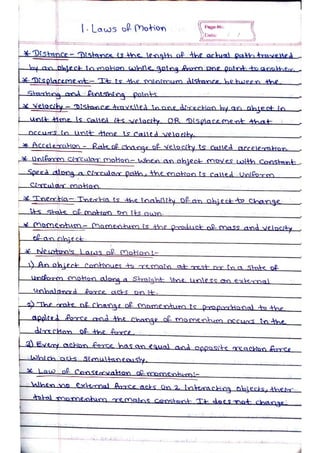 1. Laws of Motion
Page No.
Date: / /
* Distance - Distance is the length of the actual path travelled
by an object in motion while going from one point to another.
* Displacement - It is the minimum distance between the
starting and finishing points
* Velocity - Distance travelled in one direction by an object in
unit time is called its velocity. OR Displacement that
occurs in unit time is called velocity.
* Acceleration - Rate of change of velocity is called acceleration
* Uniform Circular motion - When an object moves with constant
speed along a circular path, the motion is called Uniform
Circular motion
* Inertia - Inertia is the inability of an object to change
its state of motion on its own
* Momentum - Momentum is the product of mass and velocity
of an object.
* Newton's Laws of Motion :-
1) An object continues to remain at rest or in a state of
uniform motion along a straight line unless an external
unbalanced force acts on it.
2) The rate of change of momentum is proportional to the
applied force and the change of momentum occurs in the
direction of the force.
3) Every action force has an equal and opposite reaction force
which acts simultaneously.
* Law of Conservation of momentum :-
When no external force acts on 2 interacting objects, their
total momentum remains constant. It does not change.